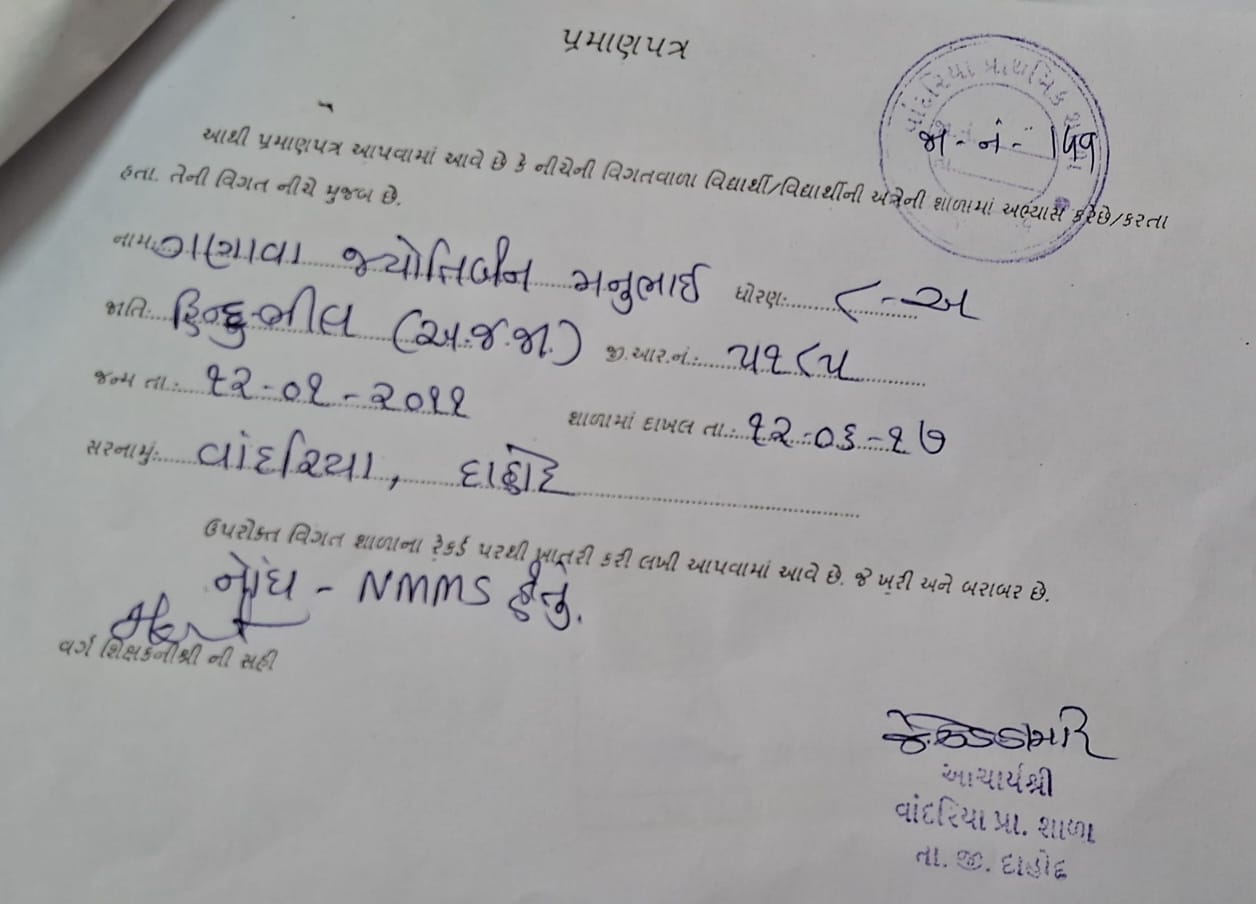 પ્રમાણપત્ર
વાંદરિયા પ્રાથમિક શાળા
જા.નં.
જા - નં - 159
આથી પ્રમાણપત્ર આપવામાં આવે છે કે નીચેની વિગતવાળા વિદ્યાર્થી/વિદ્યાર્થીની અત્રેની શાળામાં અભ્યાસ કરેછે/કરતા
હતા. તેની વિગત નીચે મુજબ છે.
નામ: ગણાવા જ્યોતિબેન મનુભાઈ ધોરણ: ૮-અ
જાતિ: હિન્દુ ભીલ (અ.જ.જા.) જી.આર.નં.: ૫૧૮૫
જન્મ તા.: ૧૨-૦૧-૨૦૧૧ શાળામાં દાખલ તા.: ૧૨-૦૬-૧૭
સરનામું: વાંદરિયા, દાહોદ
ઉપરોક્ત વિગત શાળાના રેકર્ડ પરથી ખાતરી કરી લખી આપવામાં આવે છે. જે ખરી અને બરાબર છે.
નોંધ - NMMS હેતું.
વર્ગ શિક્ષકનીશ્રી ની સહી
આચાર્યશ્રી
વાંદરિયા પ્રા. શાળા
તા. જી. દાહોદ